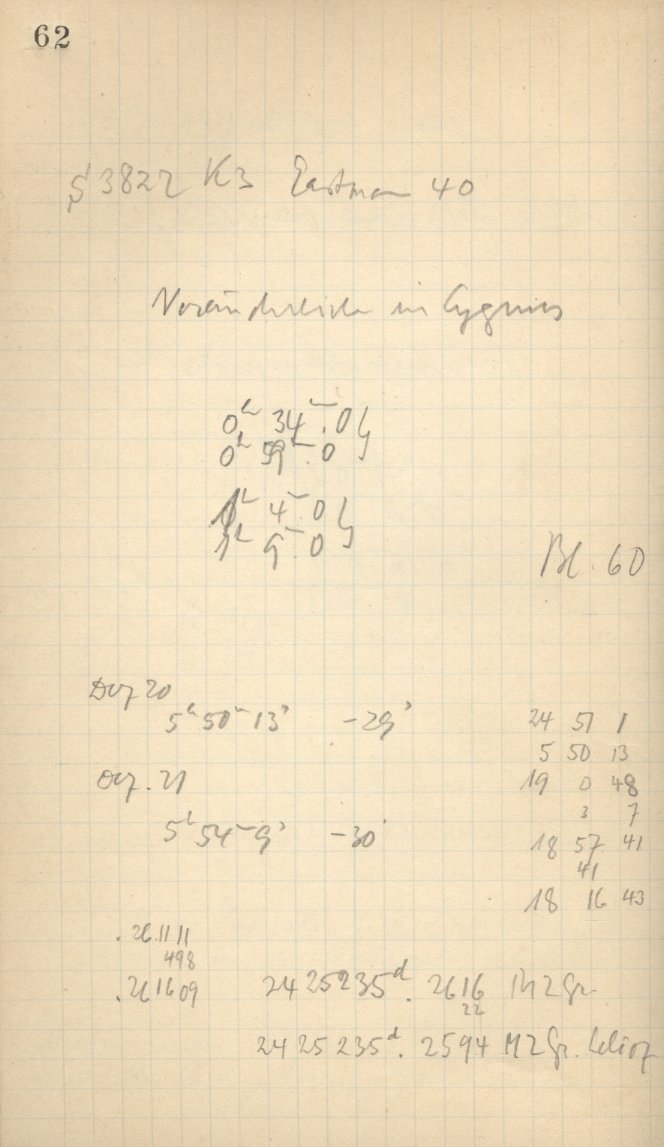 62
S 3822 K3 Eastman 40
Veränderliche in Cygnus
0h 34m.0
0h 59m.0
1h 4m 0
1h 9m 0
Bl. 60
Dez 20
5h 50m 13s -29s
Dez. 21
5h 54m 9s -30s
24 51 1
5 50 13
19 0 48
3 7
18 57 41
41
18 16 43
.261111
498
.261609
2425235d. 2616 MZGr.
22
2425235d. 2594 MZGr. helioz